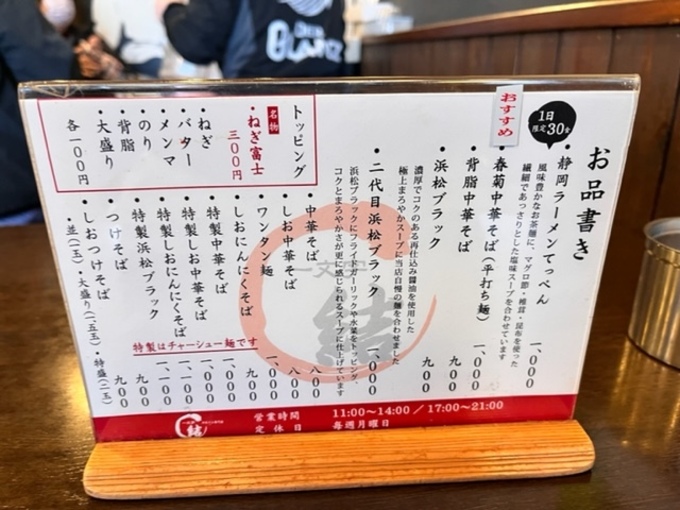 お品書き
1日
限定30食
・静岡ラーメンてっぺん 一、〇〇〇
風味豊かなお茶麺に、マグロ節・椎茸・昆布を使った
繊細であっさりとした塩味スープを合わせています
おすすめ
・春菊中華そば(平打ち麺) 一、〇〇〇
・背脂中華そば 九〇〇
・浜松ブラック 九〇〇
濃厚でコクのある再仕込み醤油を使用した
極上まろやかスープに当店自慢の麺を合わせました
・二代目浜松ブラック 一、〇〇〇
浜松ブラックにフライドガーリックや水菜をトッピング、
コクとまろやかさが更に感じられるスープに仕上げています
・中華そば 八〇〇
・しお中華そば 八〇〇
・ワンタン麺 一、〇〇〇
・しおにんにくそば 九〇〇
・特製中華そば 一、〇〇〇
・特製しお中華そば 一、〇〇〇
・特製しおにんにくそば 一、一〇〇
・特製浜松ブラック 一、一〇〇
特製はチャーシュー麺です
・つけそば 九〇〇
・しおつけそば 九〇〇
・並(一玉)・大盛り(一.五玉)・特盛(二玉)
トッピング
名物
・ねぎ富士
三〇〇円
・ねぎ
・バター
・メンマ
・のり
・背脂
・大盛り
各一〇〇円
結
営業時間 11:00〜14:00 / 17:00〜21:00
定休日 毎週月曜日